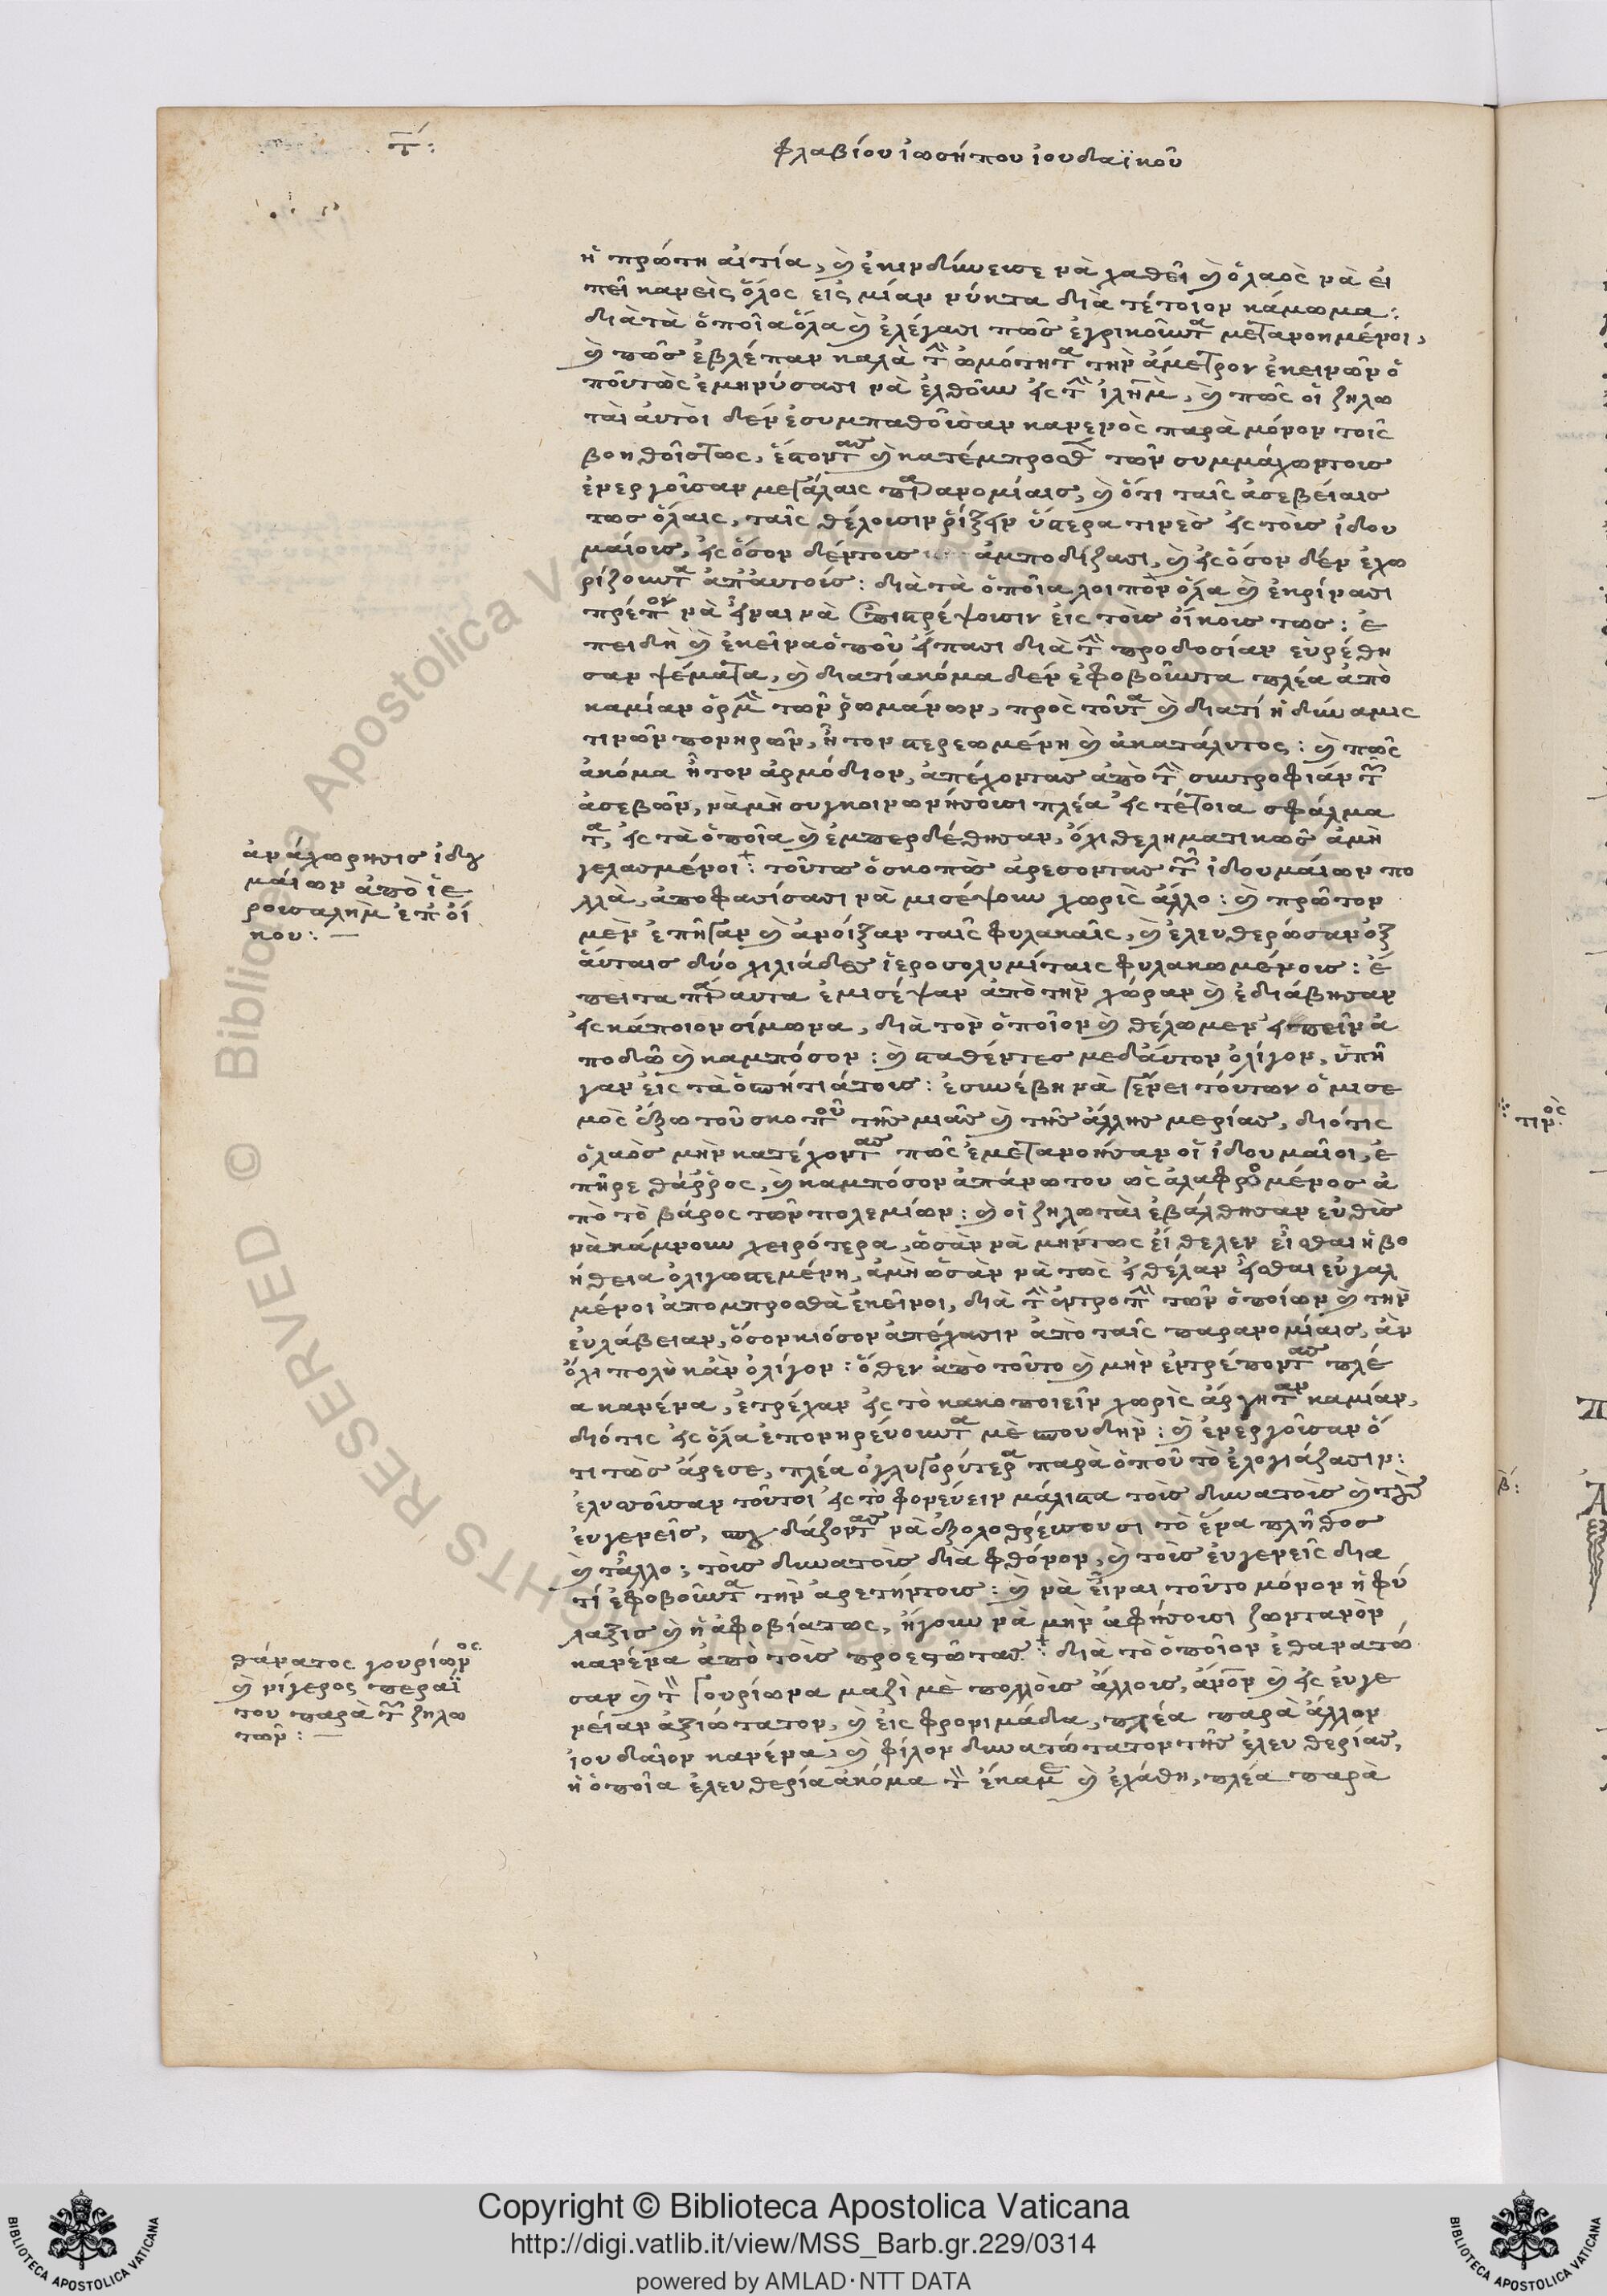 τ́:
φλαβίου ἰωσήπου ἰουδαϊκοῦ
ἡ πρώτη αἰτία, καὶ ἐκινδύνευσε νὰ χαθεῖ καὶ ὁ λαὸς νὰ εἰ
πεῖ κανεὶς ὅλος εἰς μίαν νύκτα διὰ τέτοιον κάμωμα:
διὰ τὰ ὁποῖα ὅλα καὶ ἐλέγασι πῶς ἐγρικοῦντα μετανοημένοι,
καὶ πῶς ἐβλέπαν καλὰ τὴν ὠμότητα τὴν ἄμετρον ἐκεινῶν ὁ
ποῦ τὼς ἐμηνύσασι νὰ ἐλθοῦν εἰς τὴν ἱλὴμ, καὶ πῶς οἱ ζηλω
ταὶ αὐτοὶ δὲν ἐσυμπαθοῦσαν κανενὸς παρὰ μόνον τοὺς
βοηθούς τως, ἔστοντας καὶ κατέμπροσθεν τῶν συμμάχων τους
ἐνεργοῦσαν μεγάλαις παρανομίαις, καὶ ὅτι ταῖς ἀσεβείαις
τως ὅλαις, ταῖς θέλουσιν ῥίξειν ὕστερα τινὲς εἰς τοὺς ἰδου
μαίους, εἰς ὅσον δέν τους ἀμποδίζασι, καὶ εἰς ὅσον δὲν ἐχω
ρίζουντα ἀπ' αὐτούς: διὰ τὰ ὁποῖα λοιπὸν ὅλα καὶ ἐκρίνασι
πρέπον νὰ εἶναι νὰ ἐπιστρέψουσιν εἰς τοὺς οἴκους τως: ἐ
πειδὴ καὶ ἐκεῖνα ὁποῦ εἴπασι διὰ τὴν προδοσίαν εὑρέθη
σαν ψέματα, καὶ διατὶ ἀκόμα δὲν ἐφοβοῦντα πλέα ἀπὸ
καμίαν ὁρμὴν τῶν ῥωμάνων, πρὸς τοῦτα καὶ διατὶ ἡ δύναμις
τινῶν πονηρῶν, ἦτον στερεωμένη καὶ ἀκατάλυτος: καὶ πῶς
ἀκόμα ἦτον ἁρμόδιον, ἀπέχοντας ἀπὸ τὴν συντροφιὰν τῶν
ἀσεβῶν, νὰ μὴ συγκοινωνήσουσι πλέα εἰς τέτοια σφάλμα
τα, εἰς τὰ ὁποῖα καὶ ἐμπερδέθησαν, ὄχι θεληματικῶς ἀμὴ
γελασμένοι: τοῦτος ὁ σκοπὸς ἀρέσοντας τῶν ἰδουμαίων πο
λλὰ, ἀποφασίσασι νὰ μισέψουν χωρὶς ἄλλο: καὶ πρῶτον
μὲν ἐπῆγαν καὶ ἀνοίξαν ταῖς φυλακαῖς, καὶ ἐλευθερώσαν ἐξ
αὐταις δύο χιλιάδες ἱεροσολυμίταις φυλακωμένους: ἔ
πειτα παραυτα ἐμισέψαν ἀπὸ τὴν χώραν καὶ ἐδιάβησαν
εἰς κάποιον σίμωνα, διὰ τὸν ὁποῖον καὶ θέλομεν εἰπεῖν ἀ
ποδῶ καὶ καμπόσον: καὶ σταθέντες μεδαῦτον ὀλίγον, ὑπῆ
γαν εἰς τὰ ὁσπήτιά τους: ἐσυνέβη νὰ γένει τούτων ὁ μισε
μὸς ἔξω τοῦ σκοποῦ τῆς μιᾶς καὶ τῆς ἄλλης μερίας, διότις
ὁ λαὸς μὴν κατέχοντας πῶς ἐμετανοήσαν οἱ ἰδουμαῖοι, ἐ
πῆρε θάῤῥος, καὶ καμπόσον ἀπάνω του ὡς ἀλαφρωμένος ἀ
πὸ τὸ βάρος τῶν πολεμίων: καὶ οἱ ζηλωταὶ ἐβάλθησαν εὐθὺς
νὰ κάμνουν χειρότερα, ὡσὰν νὰ μὴν τως εἴθελεν εἶσθαι ἡ βο
ήθεια ὀλιγωστεμένη, ἀμὴ ὡσὰν νὰ τὼς εἰθέλαν εἶσθαι εὐγαλ
μένοι ἀπομπροσθὰ ἐκεῖνοι, διὰ τὴν ἐντροπὴν τῶν ὁποίων καὶ τὴν
εὐλάβειαν, ὅσον κιόσον ἀπέχασιν ἀπὸ ταῖς παρανομίαις, ἂν
ὄχι πολὺ κἂν ὀλίγον: ὅθεν ἀπὸ τοῦτο καὶ μὴν ἐντρέποντας πλέ
α κανένα, ἐτρέχαν εἰς τὸ κακοποιεῖν χωρὶς ἄργηταν καμίαν,
διότις εἰς ὅλα ἐπονηρεύουντα μὲ σπουδὴν: καὶ ἐνεργοῦσαν ὅ
τι τὼς ἄρεσε, πλέα ὀγλυγορύτερα παρὰ ὁποῦ τὸ ἐλογιάζασιν:
ἐλυσσοῦσαν τοῦτοι εἰς τὸ φονεύειν μάλιστα τοὺς δυνατοὺς καὶ τοὺς
εὐγενεῖς, σπουδάζοντας νὰ ἐξολοθρεύσουσι τὸ ἕνα πλῆθος
καὶ τἄλλο: τοὺς δυνατοὺς διὰ φθόνον, καὶ τοὺς εὐγενεῖς δια
τί ἐφοβοῦντα τὴν ἀρετήν τους: καὶ νὰ εἶναι τοῦτο μόνον ἡ φύ
λαξις καὶ ἡ ἀφοβία τως, ἤγουν νὰ μὴν ἀφήσουσι ζωντανὸν
κανένα ἀπὸ τοὺς προεστῶτας: διὰ τὸ ὁποῖον ἐθανατώ
σαν καὶ τὸν γουρίωνα μαζὶ μὲ πολλοὺς ἄλλους, ἄνον καὶ εἰς εὐγέ
νειαν ἀξιώτατον, καὶ εἰς φρονιμάδα, πλέα παρὰ ἄλλον
ἰουδαῖον κανένα, καὶ φίλον δυνατώτατον τῆς ἐλευθερίας,
ἡ ὁποῖα ἐλευθερία ἀκόμα τὸν ἔκαμε καὶ ἐχάθη, πλέα παρὰ
ἀναχώρησις ἰδου
μαίων ἀπὸ ἱε
ρουσαλὴμ ἐπ' οἴ
κου: —
θάνατος γουρίωνος
καὶ νίγερος περαΐ
του παρὰ τῶν ζηλω
τῶν: —
τινὸς
β́:
Copyright © Biblioteca Apostolica Vaticana
http://digi.vatlib.it/view/MSS_Barb.gr.229/0314
powered by AMLAD·NTT DATA
BIBLIOTECA APOSTOLICA VATICANA
BIBLIOTECA APOSTOLICA VATICANA